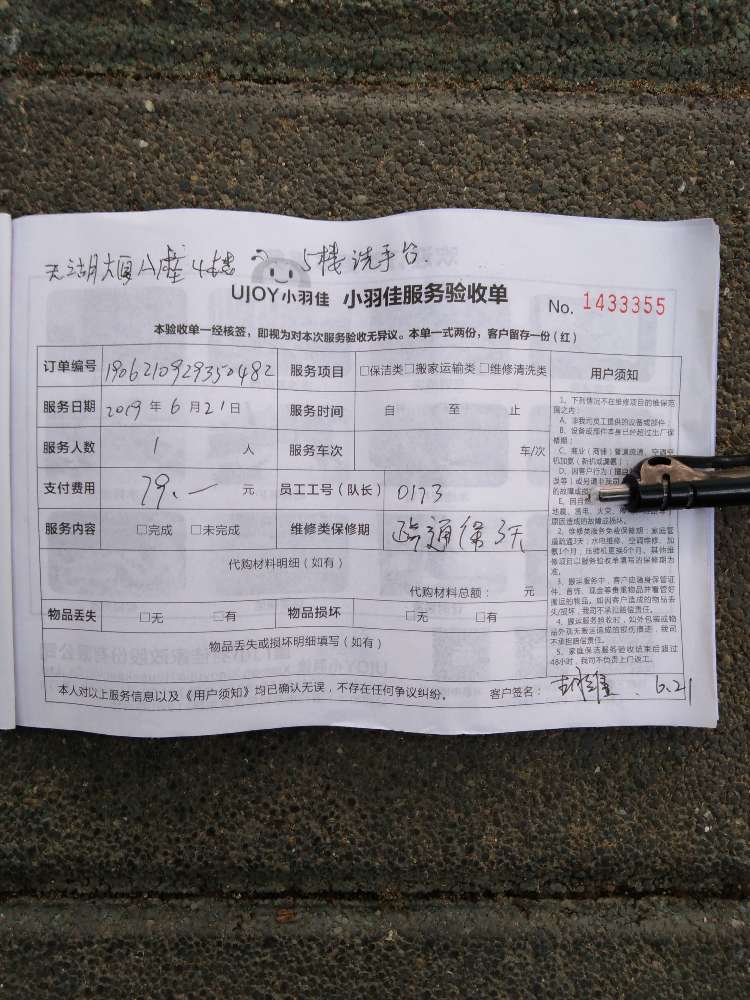 天湖大厦A座4楼 5楼洗手台.
UJOY小羽佳 小羽佳服务验收单 No. 1433355
本验收单一经核签，即视为对本次服务验收无异议。本单一式两份，客户留存一份(红)
订单编号 1906210929350482 服务项目 □保洁类□搬家运输类□维修清洗类 用户须知
服务日期 2019年6月21日 服务时间 自 至 止
服务人数 1 人 服务车次 车/次
支付费用 79.— 元 员工工号（队长） 0173
服务内容 □完成 □未完成 维修类保修期 疏通保3天
代购材料明细（如有）
代购材料总额： 元
物品丢失 □无 □有 物品损坏 □无 □有
物品丢失或损坏明细填写（如有）
本人对以上服务信息以及《用户须知》均已确认无误，不存在任何争议纠纷。 客户签名： 6.21
1、下列情况不在维修项目的维保范
围之内：
A、非我司员工提供的设备或部件；
B、设备或部件本身已经超过出厂保
修期；
C、商业（商铺）管道疏通、空调空
机加氨（新机或满氨）；
D、因客户行为
的故障或
E、因自然
地震、雷电、火灾、
原因造成的故障或损坏。
2、维修类服务免费保修期：家庭管
道疏通3天；水电维修、空调维修、加
氨1个月；压缩机更换6个月，其他维
修项目以服务验收单填写的保修期为
准。
3、搬运服务中，客户应随身保管证
件、首饰、现金等贵重物品并看管好
搬运的物品，如因客户造成的物品丢
失/损坏，我司不承担赔偿责任。
4、搬运服务验收时，如外包装或物
品外观无搬运造成的损伤痕迹，我司
不承担赔偿责任。
5、家庭保洁服务验收结束后超过
48小时，我司不负责上门返工。